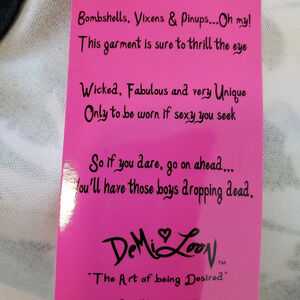 Bombshells, Vixens & Pinups...Oh my!
This garment is sure to thrill the eye
Wicked, Fabulous and very Unique
Only to be worn if sexy you seek
So if you dare, go on ahead...
You'll have those boys dropping dead.
DeMi Loon TM
"The Art of being Desired"